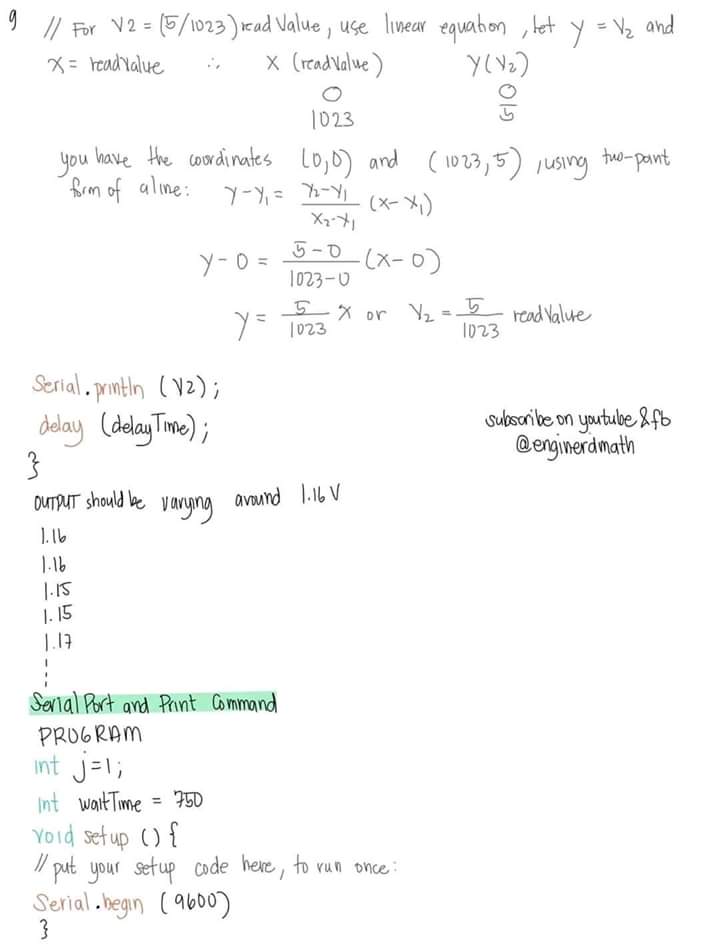 9
// For V2 = (5/1023) readValue, use linear equation, let y = V₂ and
x = readValue ∴ x (readValue) y(V₂)
0 0
1023 5
you have the coordinates (0,0) and (1023,5), using two-point
form of a line: y-y₁ = y₂-y₁/x₂-x₁ (x-x₁)
y-0 = 5-0/1023-0 (x-0)
y = 5/1023 x or V₂ = 5/1023 readValue
Serial.println (V2);
delay (delayTime);
}
subscribe on youtube & fb
@enginerdmath
OUTPUT should be varying around 1.16 V
1.16
1.16
1.15
1.15
1.17
⋮
Serial Port and Print Command
PROGRAM
int j=1;
int waitTime = 750
void setup () {
// put your setup code here, to run once:
Serial.begin (9600)
}